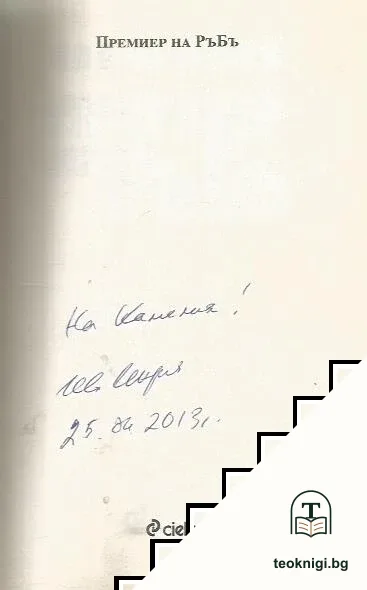 ПРЕМИЕР НА РЪБЪ
На Камелия!
25. 2013г.
ciel
T
teoknigi.bg